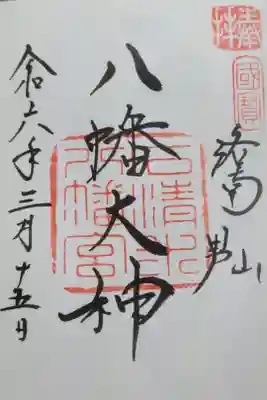 奉拝
國寶
洛南
男山
八幡大神
石清水
八幡宮
令六年三月十五日